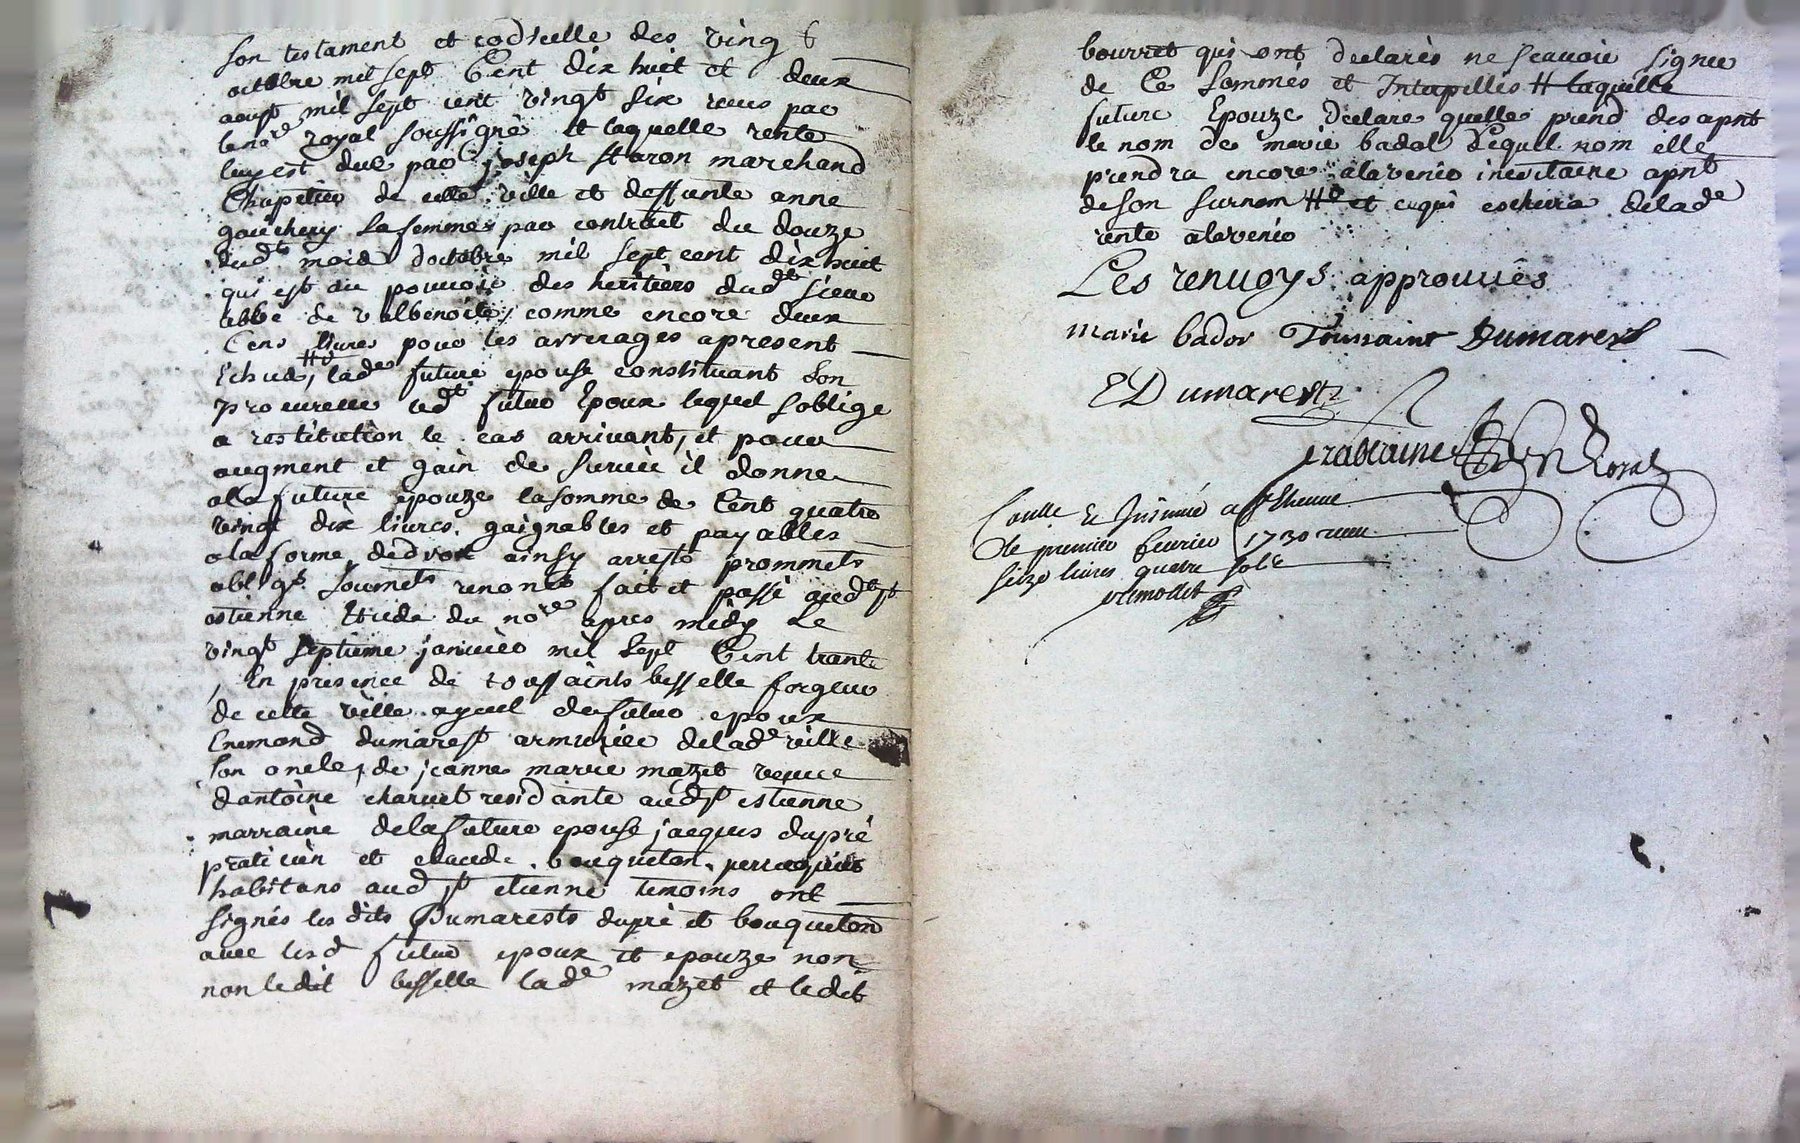 son testament et codicelle des vingt
octobre mil sept Cent dix huit et deux
aoust mil sept cent vingt six receus par
le nre royal soussigné # laquelle rente
luy est due par joseph staron marchand
Chapelier de cette ville et deffunte anne
gaucheny sa femme par contract du douze
dudt mois doctobre mil sept cent dix huit
qui est au pouvoir des heritiers dudt sieur
abbé de valbenoite, comme encore deux
Cens livres pour les arrerages apresent
Echus, # lade future epouse constituant son
procureur ledt futur Epoux lequel soblige
a restitution le cas arrivant, et pour
augment et gain de survie il donne
ala future epouze la somme de Cent quatre
vingt dix livres gaignables et payables
ala forme dedroit ainsy arresté prommets
oblige soumets renonce fait et passé audt st
estienne Etude du nore apres midy Le
vingt septieme janvier mil sept Cent trante
, En presence de toussaints besselle forgeur
de cette ville ayeul defutur epoux
Enemond dumarest armurier delade ville
son oncle, de jeanne marie mazet veuve
dantoine charuet residante audt st estienne
marraine dela future epouse jacques dupré
praticien et claude bouqueton perruquier
habitans aud st etienne temoins ont
signés les dits Dumarests dupré et bouqueton
avec lesd futur epoux et epouze non
non ledit besselle lade mazet et ledit
bourret qui ont declarés ne scavoir signer
de Ce sommés et Intepellés # laquelle
future Epouze declare quelle prend des apnt
le nom de marie bador Lequel nom elle
prendra encore alavenir inevitaire apnt
de son surnom # et cequi eschera delade
rente alavenir
Les renvoys approuvés
marie bador Toussaint Dumarest
EDumarest
Conlle Et Insinué a St Etienne
le premier fevrier 1730 receu
seize livres quatre sols